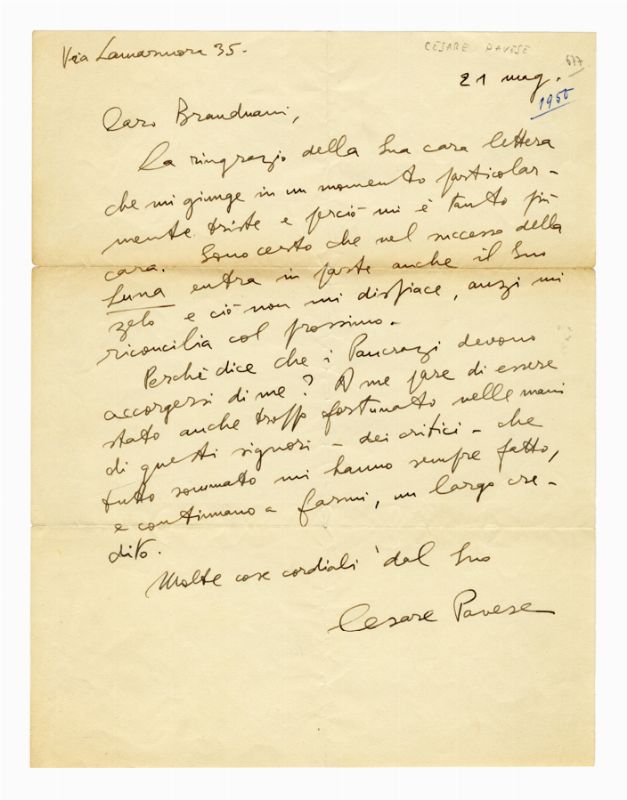 Via Lamarmora 35.
CESARE PAVESE
677
21 mag.
1950
Caro Branduani,
La ringrazio della Sua cara lettera
che mi giunge in un momento particolar-
mente triste e perciò mi è tanto più
cara. Sono certo che nel successo della
Luna entra in parte anche il Suo
zelo e ciò non mi dispiace, anzi mi
riconcilia col prossimo.
Perché dice che i Pancrazi devono
accorgersi di me? A me pare di essere
stato anche troppo fortunato nelle mani
di questi signori - dei critici - che
tutto sommato mi hanno sempre fatto,
e continuano a farmi, un largo cre-
dito.
Molte cose cordiali dal Suo
Cesare Pavese